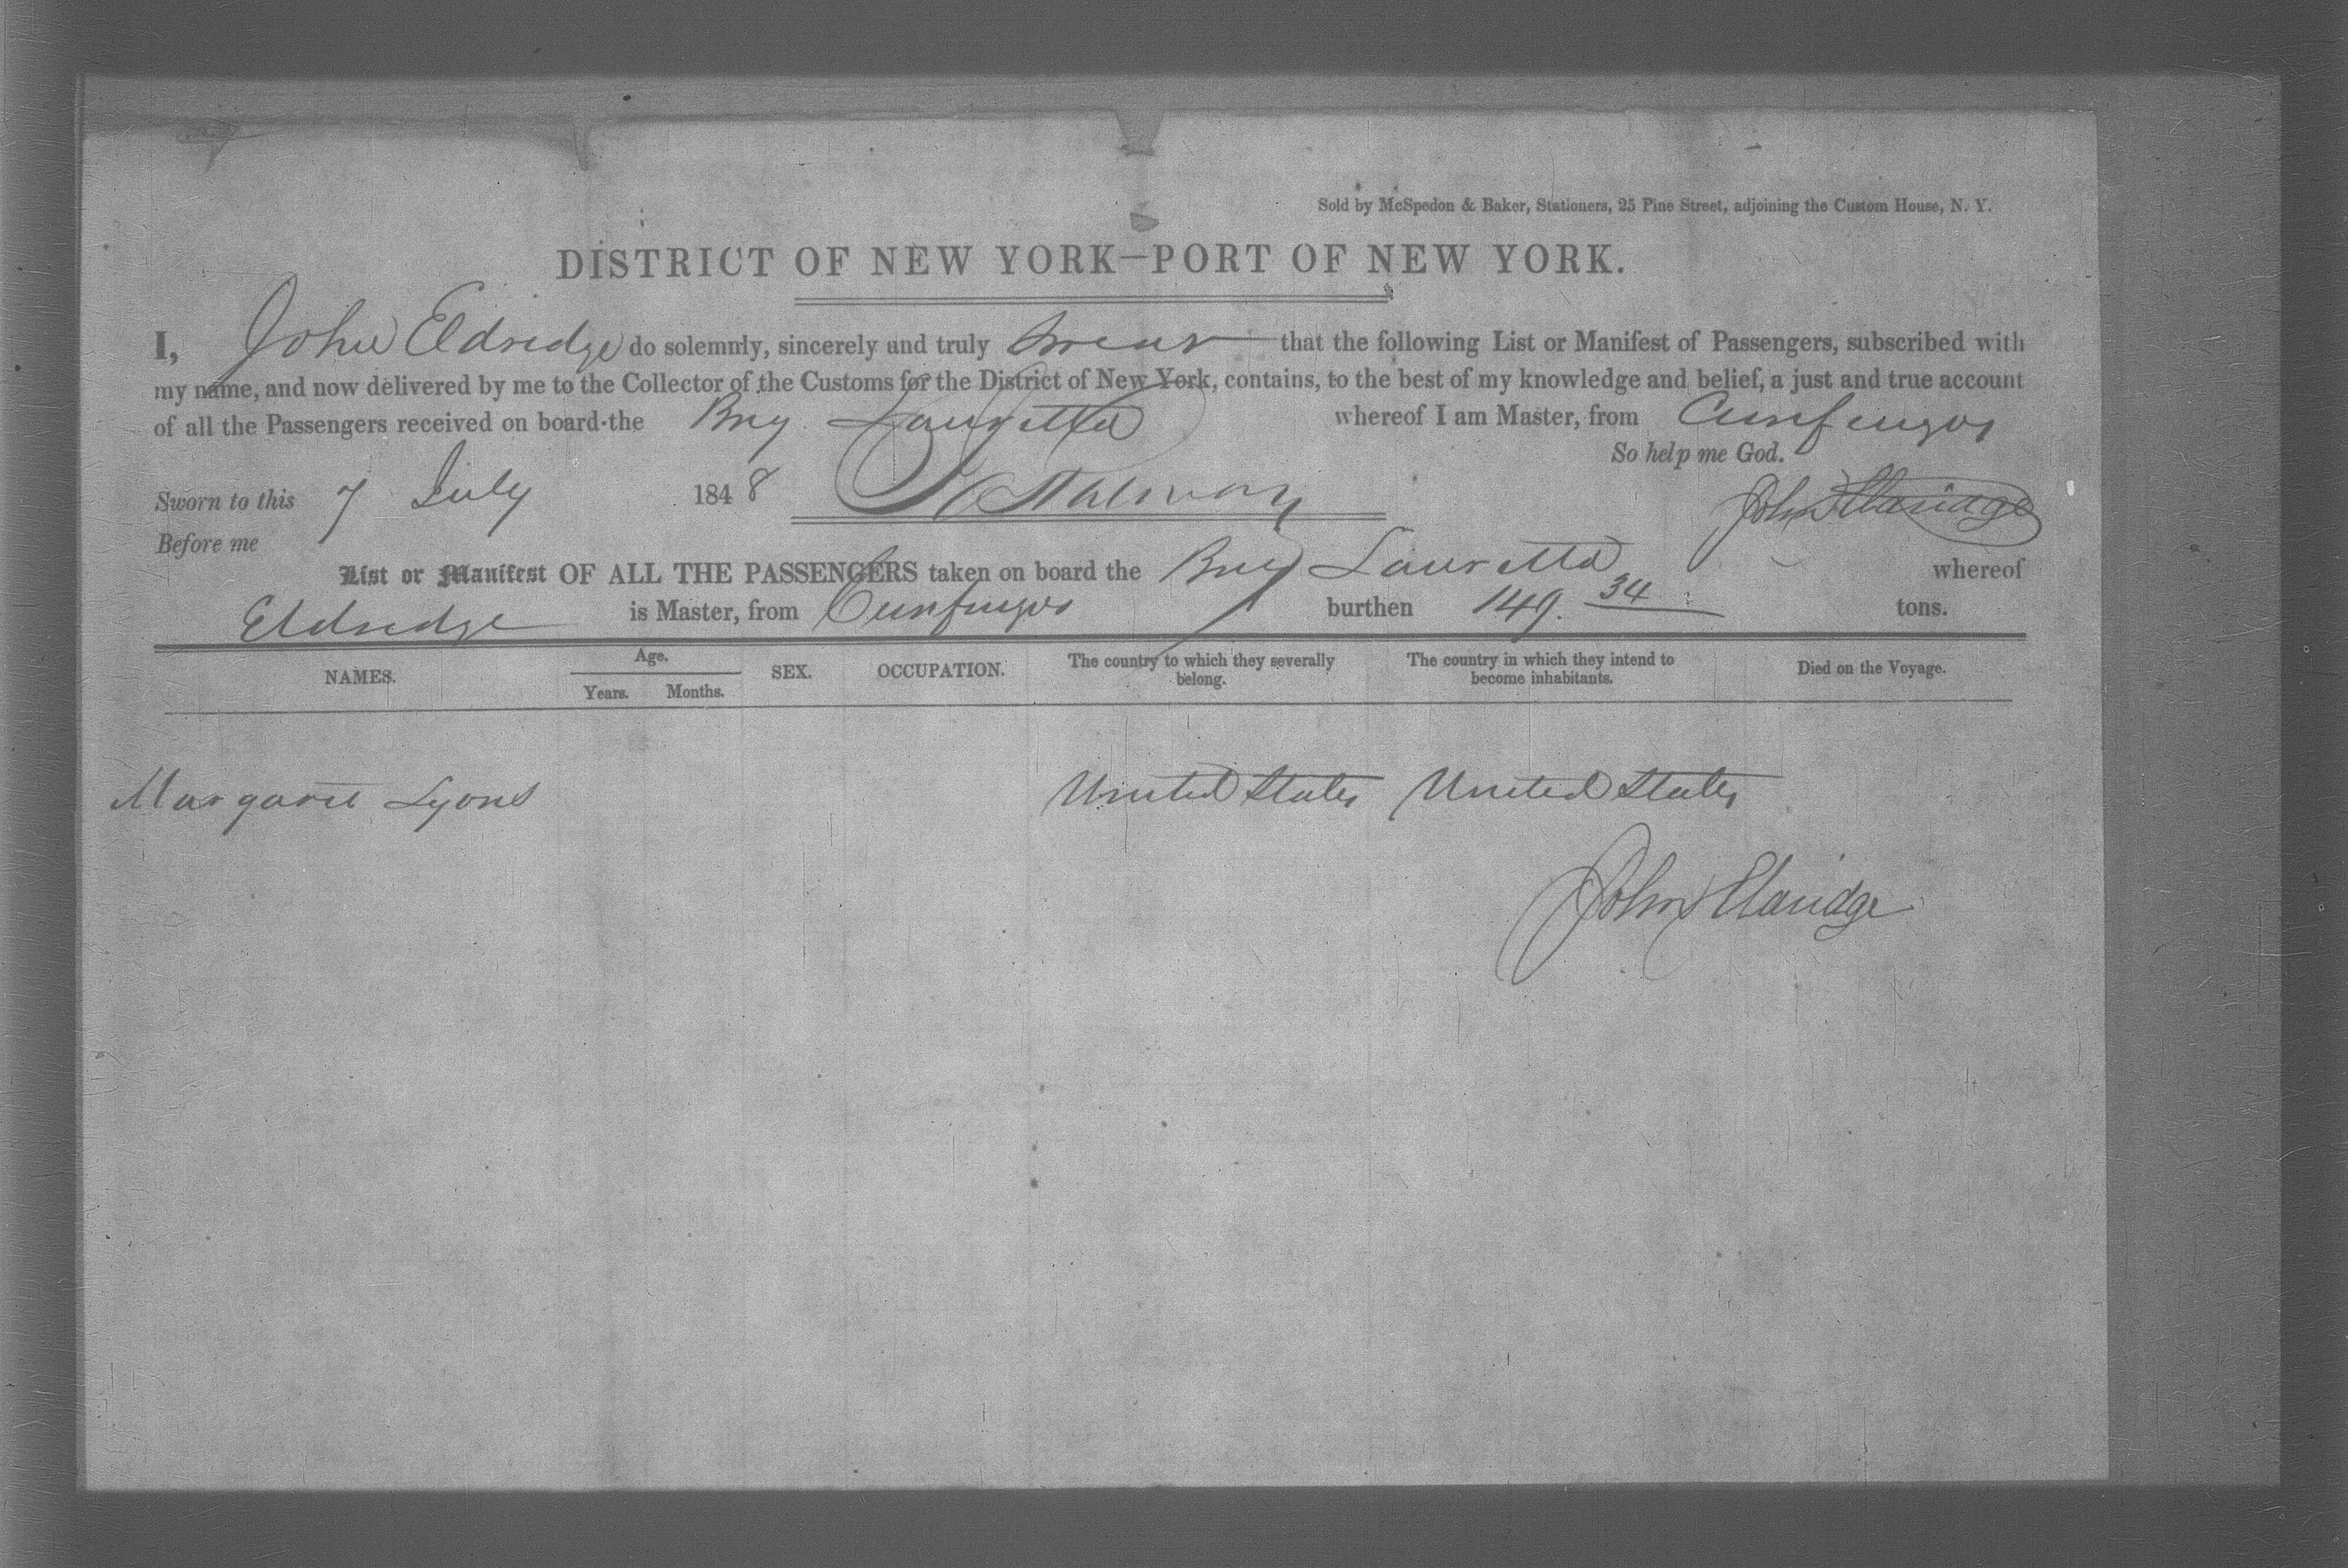 Sold by McSpedon & Baker, Stationers, 25 Pine Street, adjoining the Custom House, N. Y.
DISTRICT OF NEW YORK—PORT OF NEW YORK.
I, John Eldredge do solemnly, sincerely and truly swear that the following List or Manifest of Passengers, subscribed with
my name, and now delivered by me to the Collector of the Customs for the District of New York, contains, to the best of my knowledge and belief, a just and true account
of all the Passengers received on board the Brig Lauretta whereof I am Master, from Cienfuegos
So help me God.
Sworn to this 7 July 1848 John Eldridge
Before me
List or Manifest OF ALL THE PASSENGERS taken on board the Brig Lauretta whereof
Eldredge is Master, from Cienfuegos burthen 149. 34 tons.
NAMES. Age. Years. Months. SEX. OCCUPATION. The country to which they severally belong. The country in which they intend to become inhabitants. Died on the Voyage.
Margaret Lyons United States United States
John Eldridge